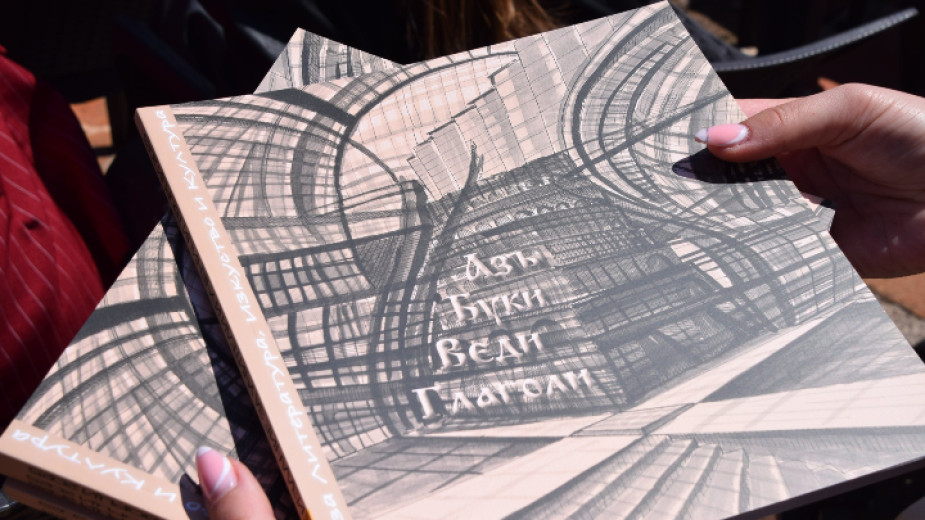 Азъ
Буки
Веди
Глаголи
за литература, изкуство и култура
и култура